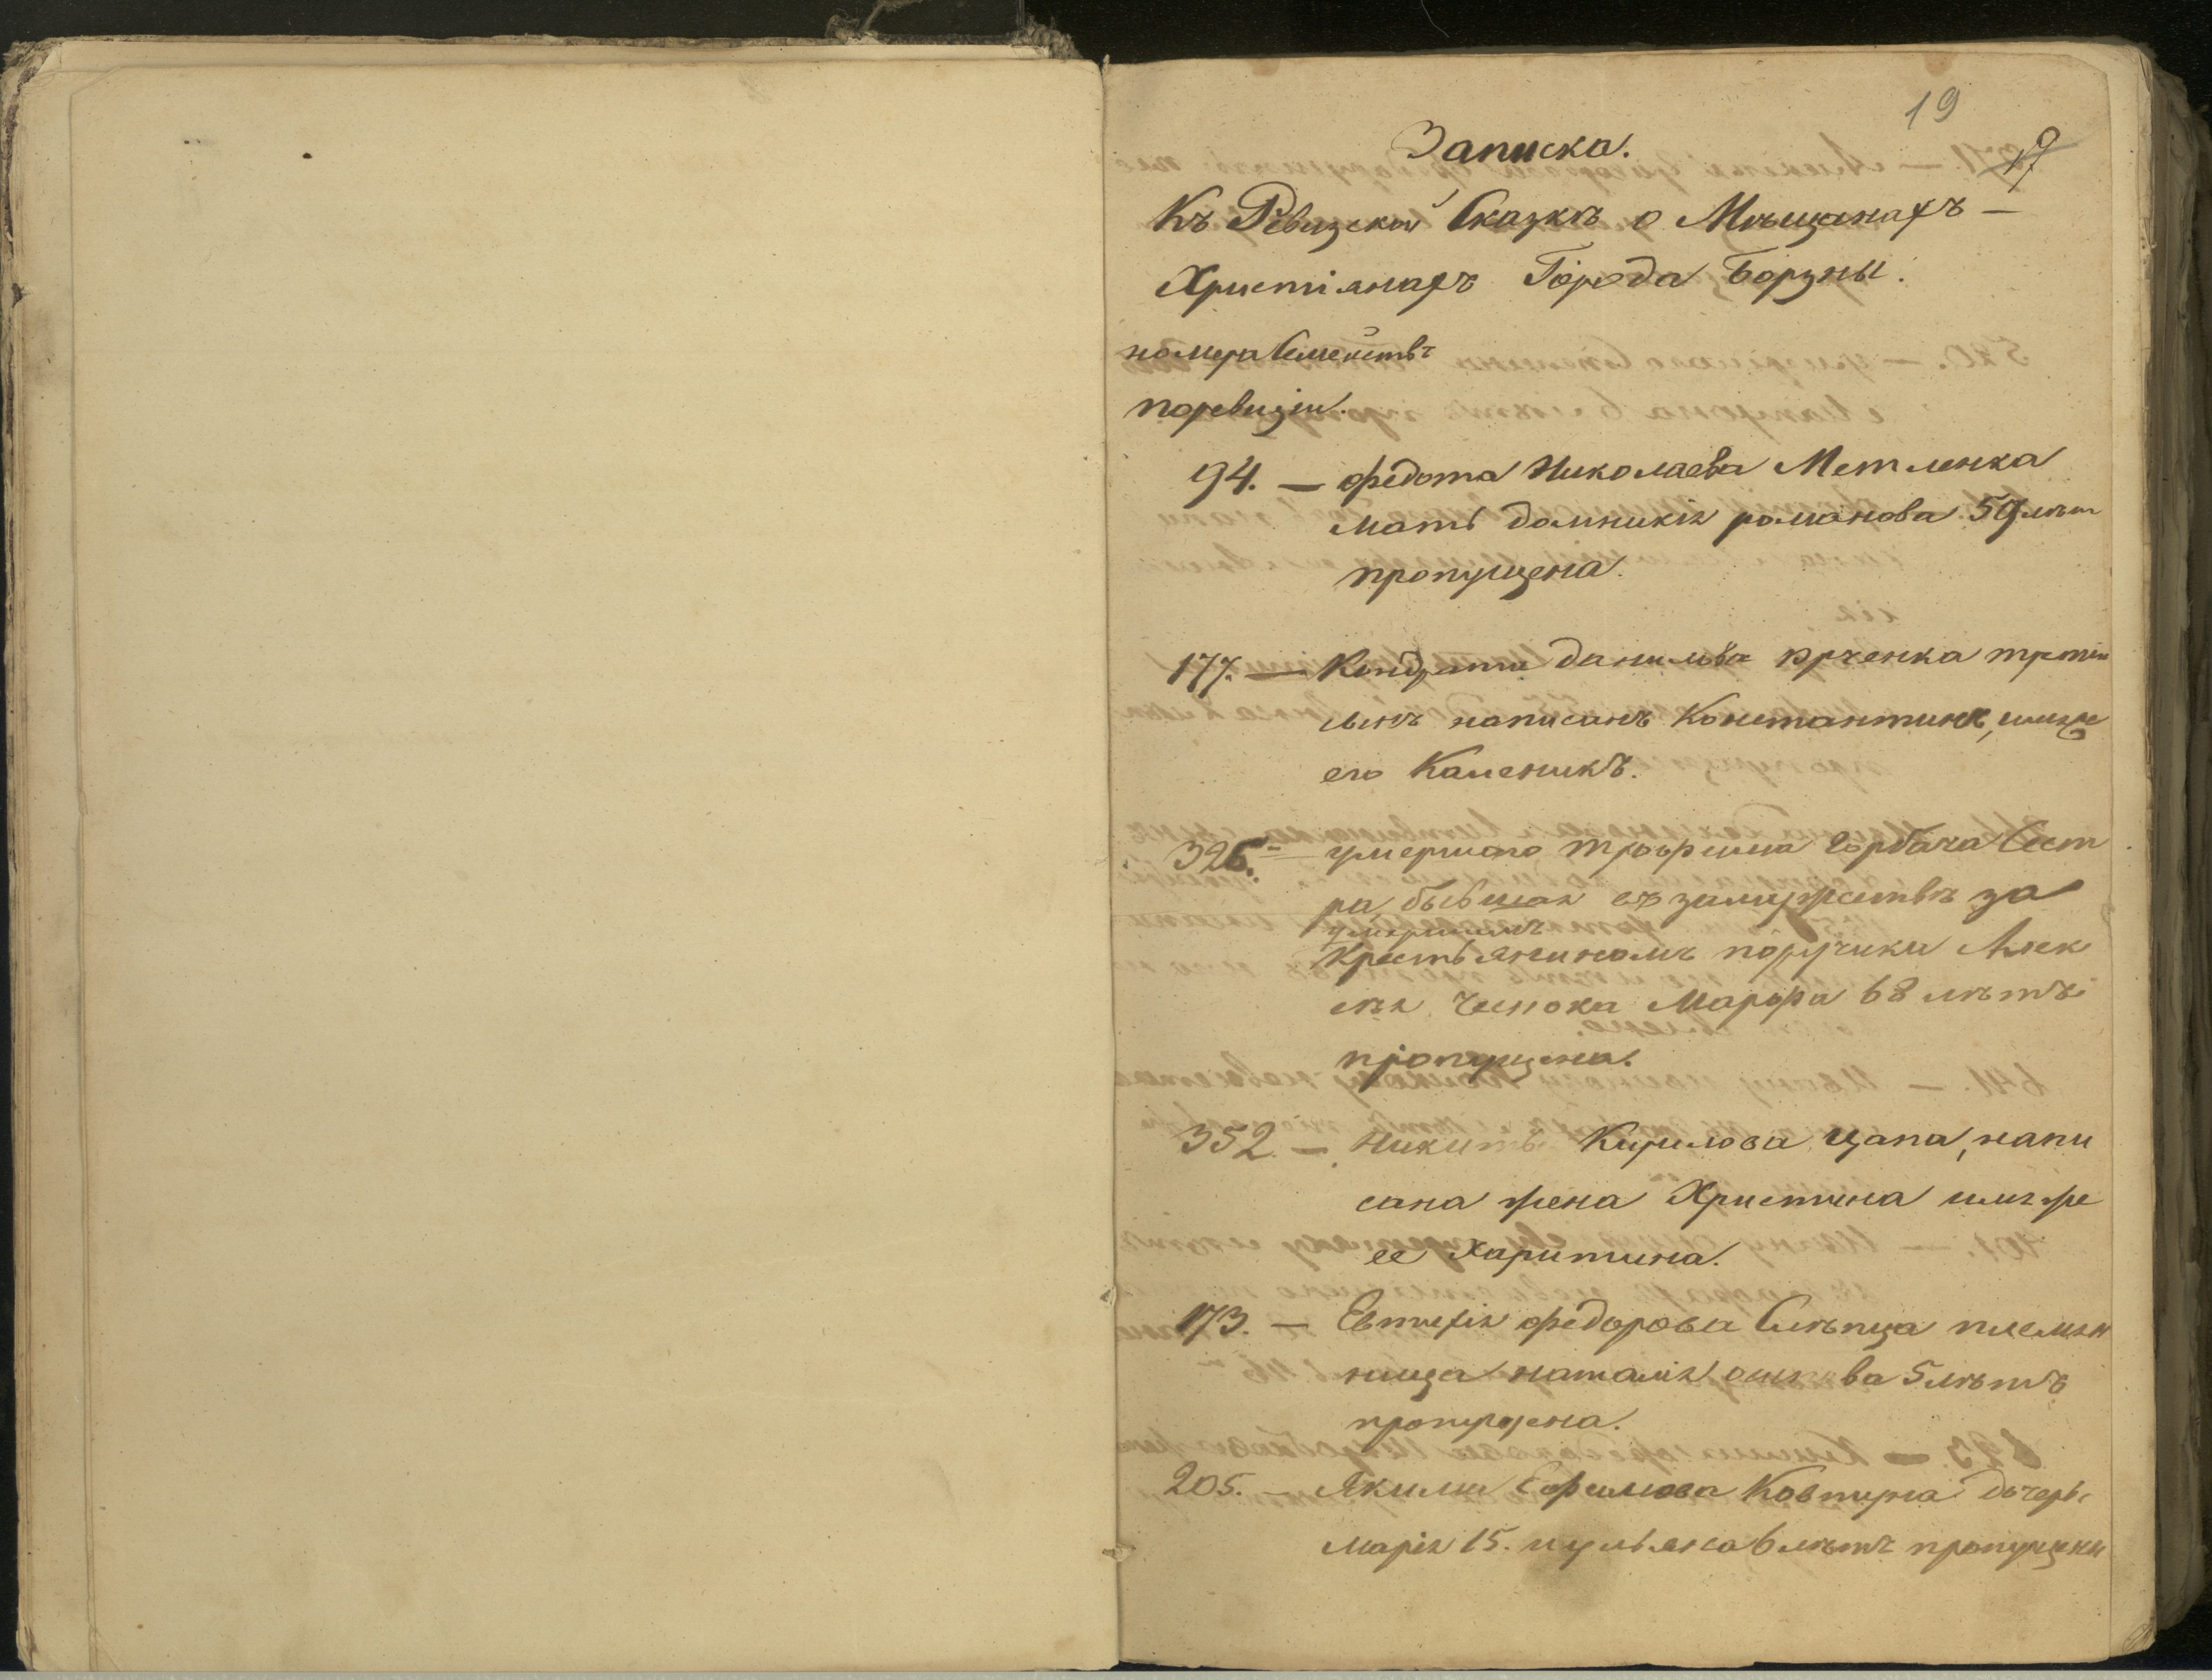 19
19
Записка.
Къ Ревизской Сказкѣ о Мѣщанахъ —
Христіанахъ Города Борзны.
номера Семействъ
поревизіи.
94. — Федота Николаева Метленка
мать домникія романова 59 лѣт
пропущена.
177. — Кондрата данилова Юрченка третій
сынъ написанъ Константинъ, имяже
его Каленикъ.
326. — умершаго Трофима Горбача Сест
ра, бывшая въ замужствѣ за
умершимъ
Крестьяниномъ поручика Алек
сѣя Чеснока Марфа 68 лѣтъ
пропущена.
352. — Никиты Кирилова Цапа, напи
сана жена Христина имя же
ее Харитина.
173. — Евтихія Федорова Слѣпца племян
ница наталія 5 лѣтъ
пропущена.
205. — Якима Ефимова Ковтуна дочерь
Марія 15. и ульяна 6 лѣтъ пропущены